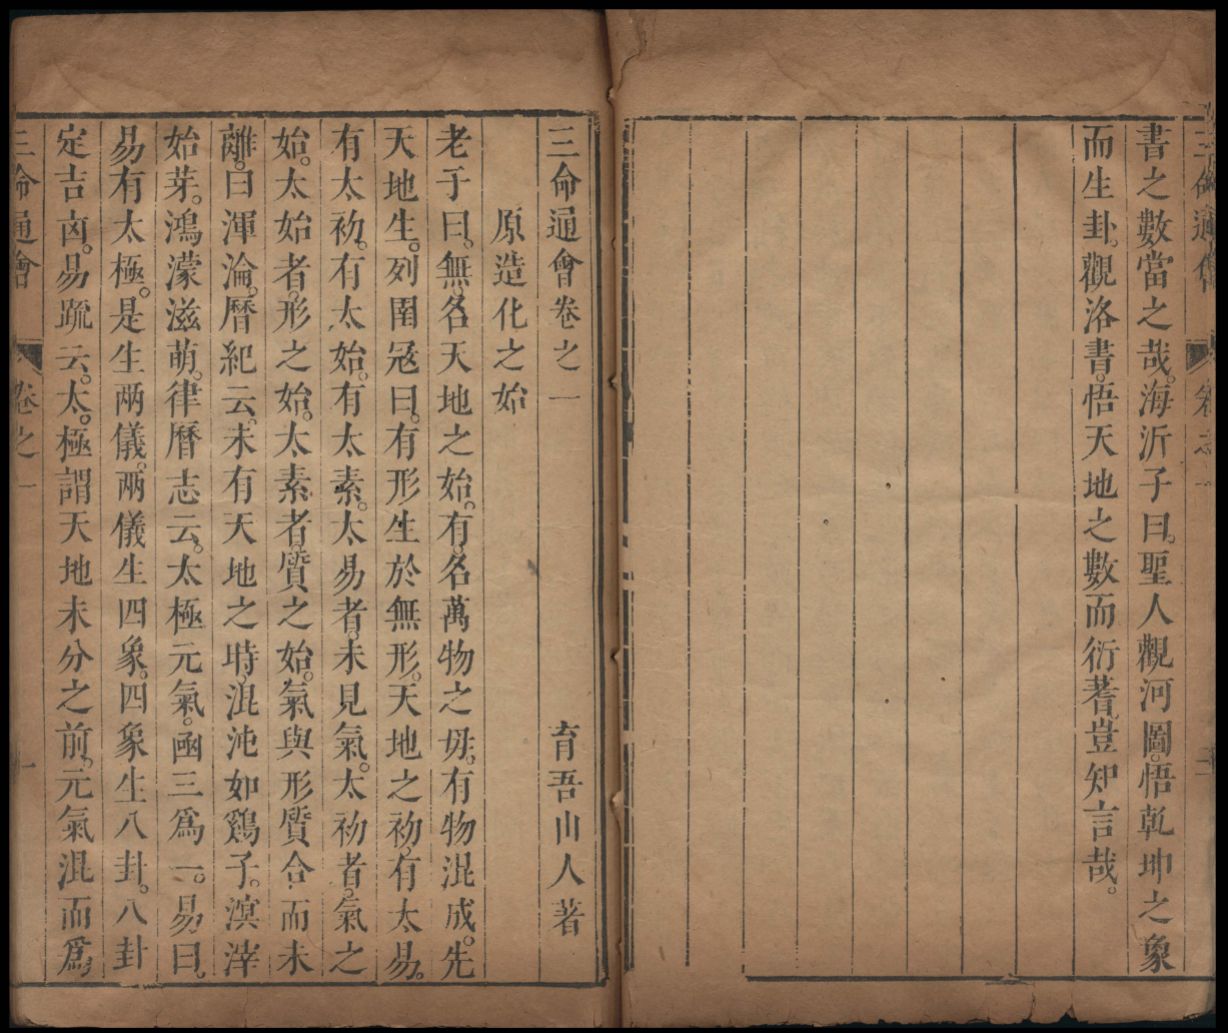 書之數當之哉。海沂子曰。聖人觀河圖。悟乾坤之象
而生卦。觀洛書。悟天地之數而衍蓍。豈知言哉。
三命通會卷之一　育吾山人著
原造化之始
老子曰。無名天地之始。有名萬物之母。有物混成。先
天地生。列圄宼曰。有形生於無形。天地之初。有太易。
有太初。有太始。有太素。太易者。未見氣。太初者。氣之
始。太始者。形之始。太素者。質之始。氣與形質合而未
離。曰渾淪。曆紀云。未有天地之時。混沌如鷄子。溟涬
始芽。鴻濛滋萌。律曆志云。太極元氣。函三爲一。易曰。
易有太極。是生兩儀。兩儀生四象。四象生八卦。八卦
定吉㐫。易䟽云。太。極謂天地未分之前。元氣混而爲
三命通會　卷之一　一